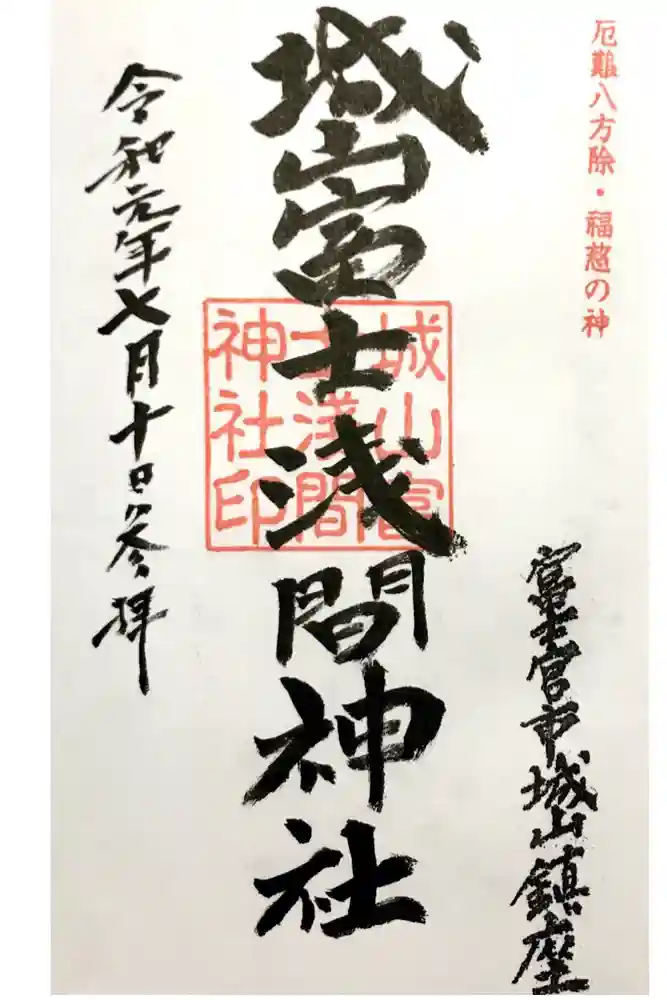 厄難八方除・福慈の神
富士宮市城山鎮座
城山富士浅間神社
城山富
士浅間
神社印
令和元年七月十日参拝